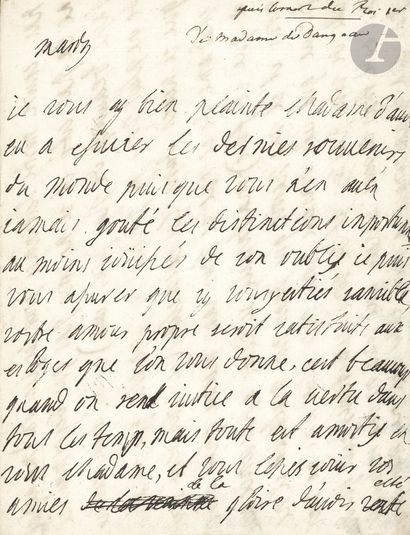 puis la mort du Roi
De Madame de Dangeau
mardy
je vous ay bien plainte Madame d'avoir
eu a essuier les dernies souvenirs
du monde puisque vous n'en avés
jamais gouté les distinctions
au moins de son oublie je puis
vous assurer que sy vous estiés sansible
vostre amour propre seroit satisfait aux
esloges que l'on vous donne, c'est beaucoup
quand on rent justice a la vertu dans
tous les temps, mais toute est amortie en
vous Madame, et vous laissés jouir vos
amies de la gloire d'avoir esté